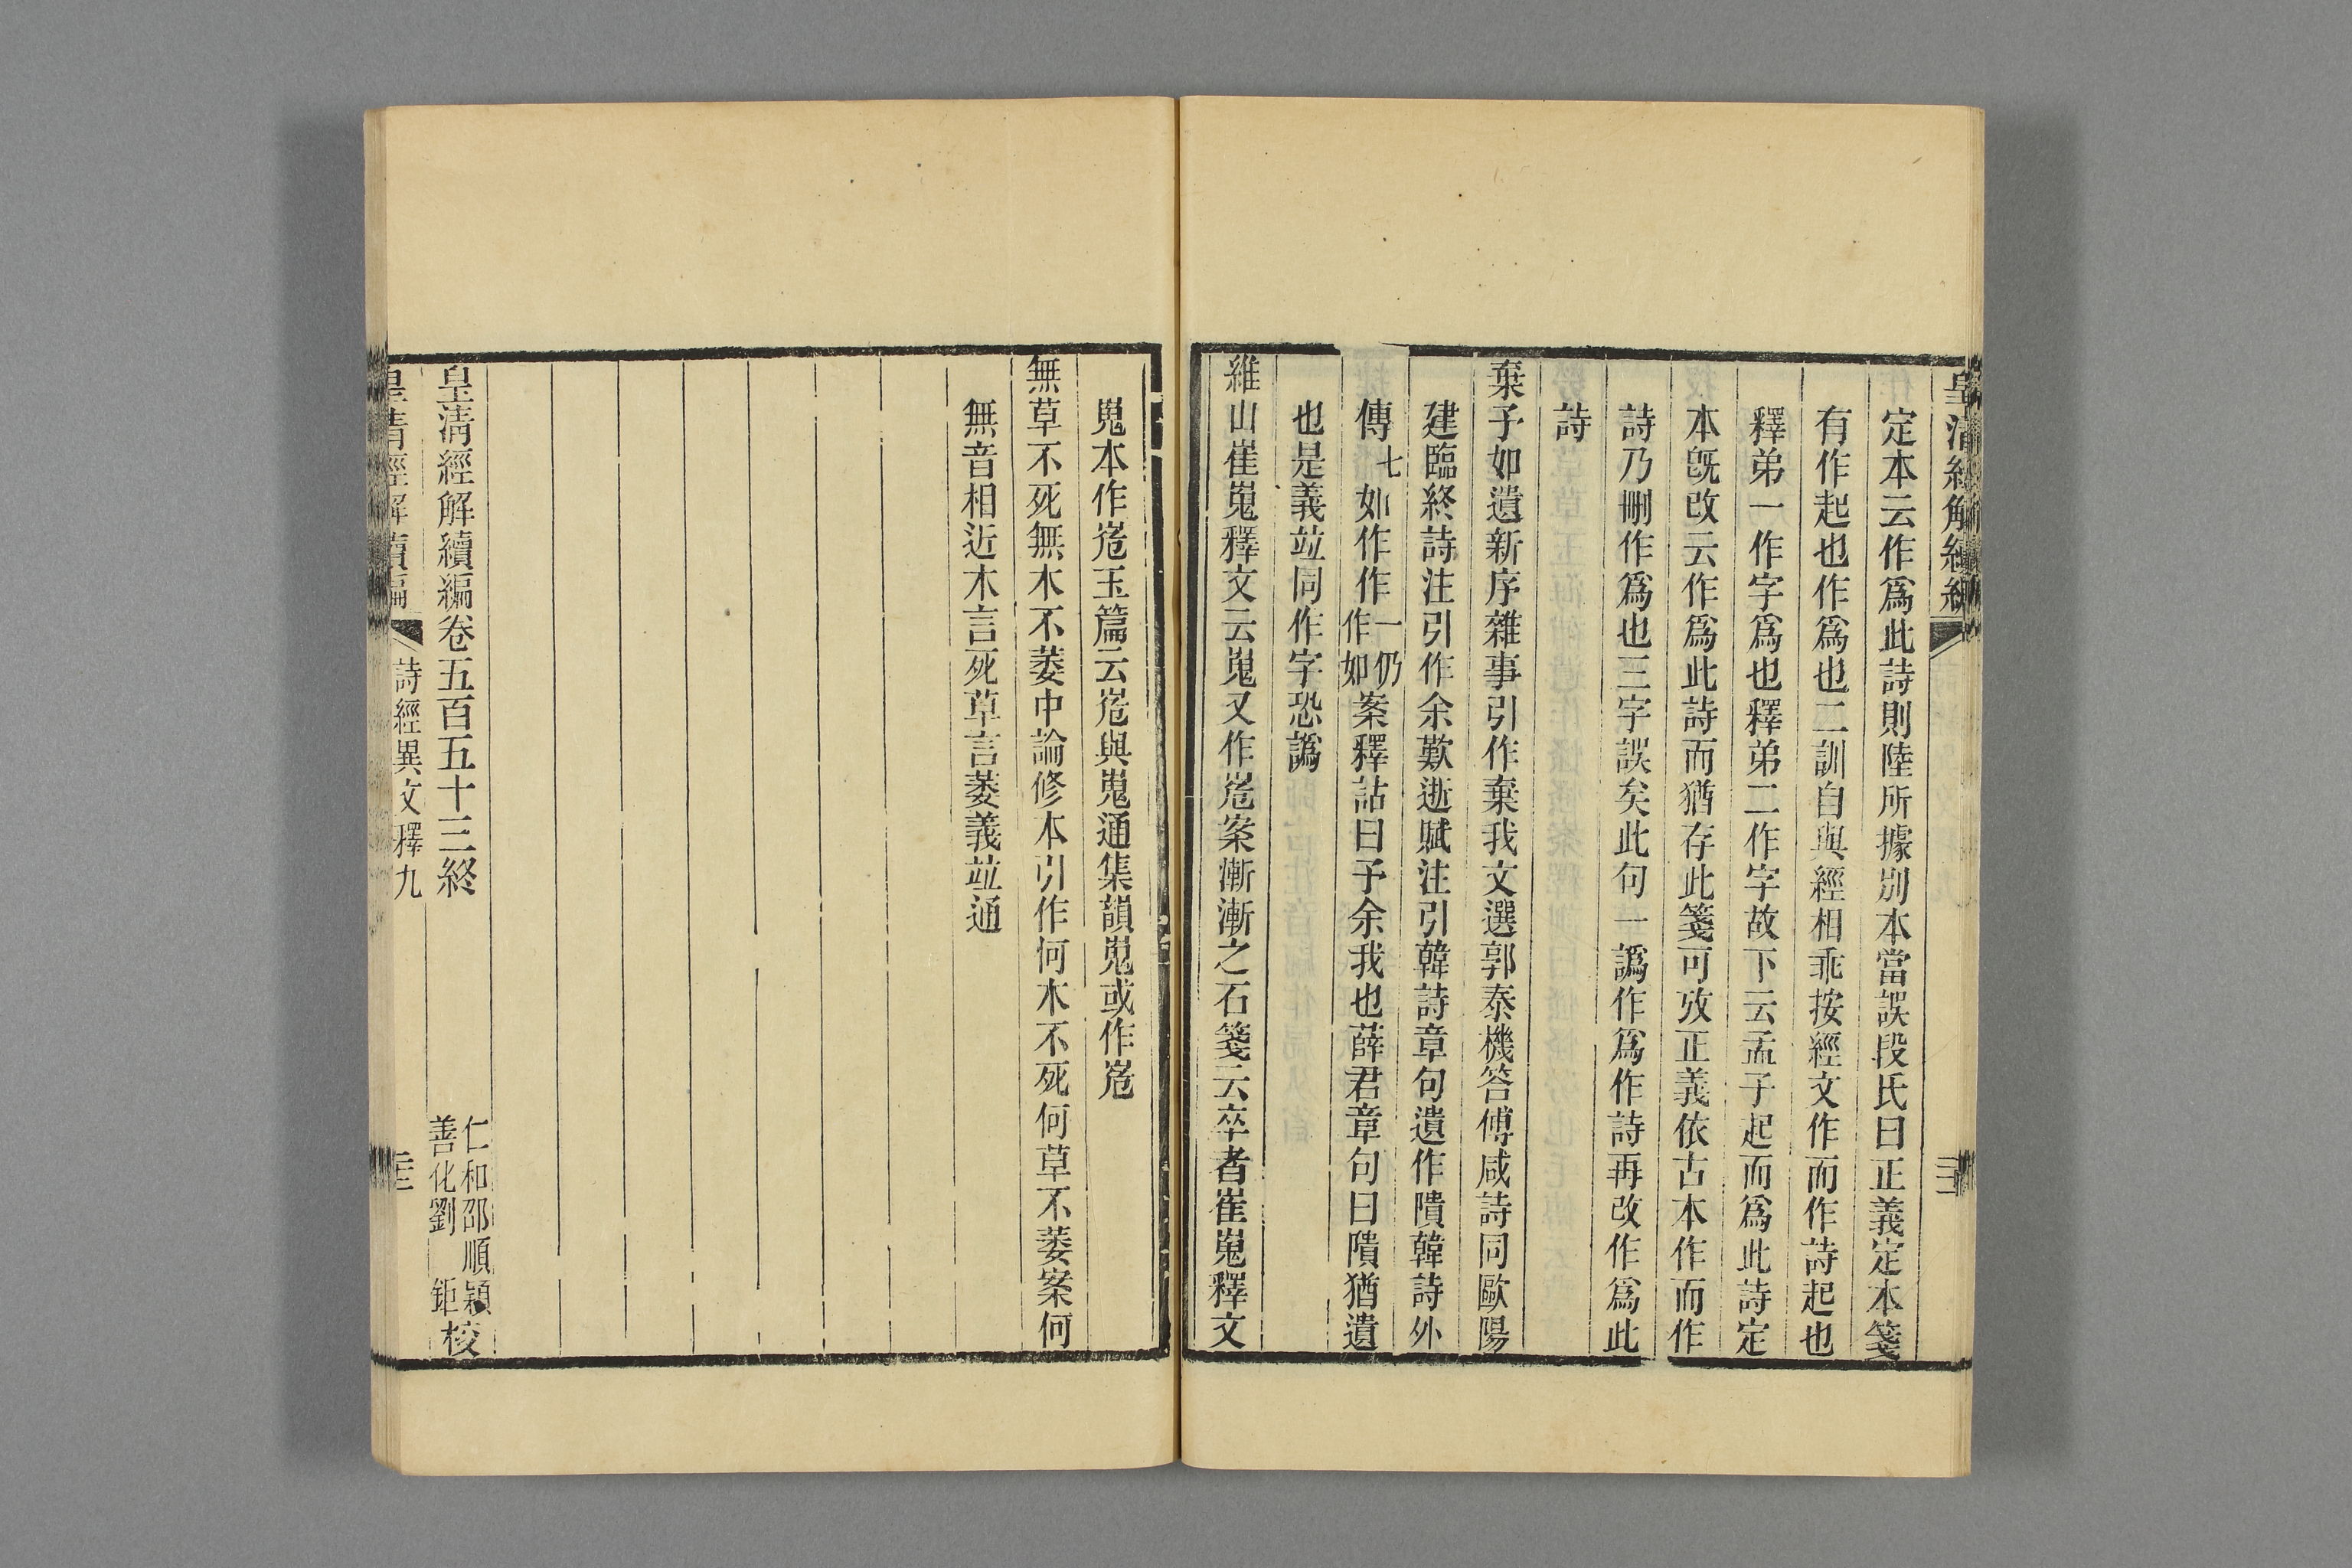 皇清經解續編
定本云作爲此詩則陸所據別本當誤段氏曰正義定本箋
有作起也作爲也二訓自與經相乖按經文作而作詩起也
釋弟一作字爲也釋弟二作字故下云孟子起而爲此詩定
本旣改云作爲此詩而猶存此箋可攷正義依古本作而作
詩乃刪作爲也三字誤矣此句一譌作爲作詩再改作爲此
詩
棄予如遺新序雜事引作棄我文選郭泰機答傅咸詩同歐陽
建臨終詩注引作余歎逝賦注引韓詩章句遺作隤韓詩外
傳七如作作一仍作如案釋詁曰予余我也薛君章句曰隤猶遺
也是義竝同作字恐譌
維山崔嵬釋文云嵬又作峞案漸漸之石箋云卒者崔嵬釋文
嵬本作峞玉篇云峞與嵬通集韻嵬或作峞
無草不死無木不萎中論修本引作何木不死何草不萎案何
無音相近木言死草言萎義竝通
皇清經解續編卷五百五十三終
仁和邵順穎
善化劉 鉅校
皇清經解續編 詩經異文釋九